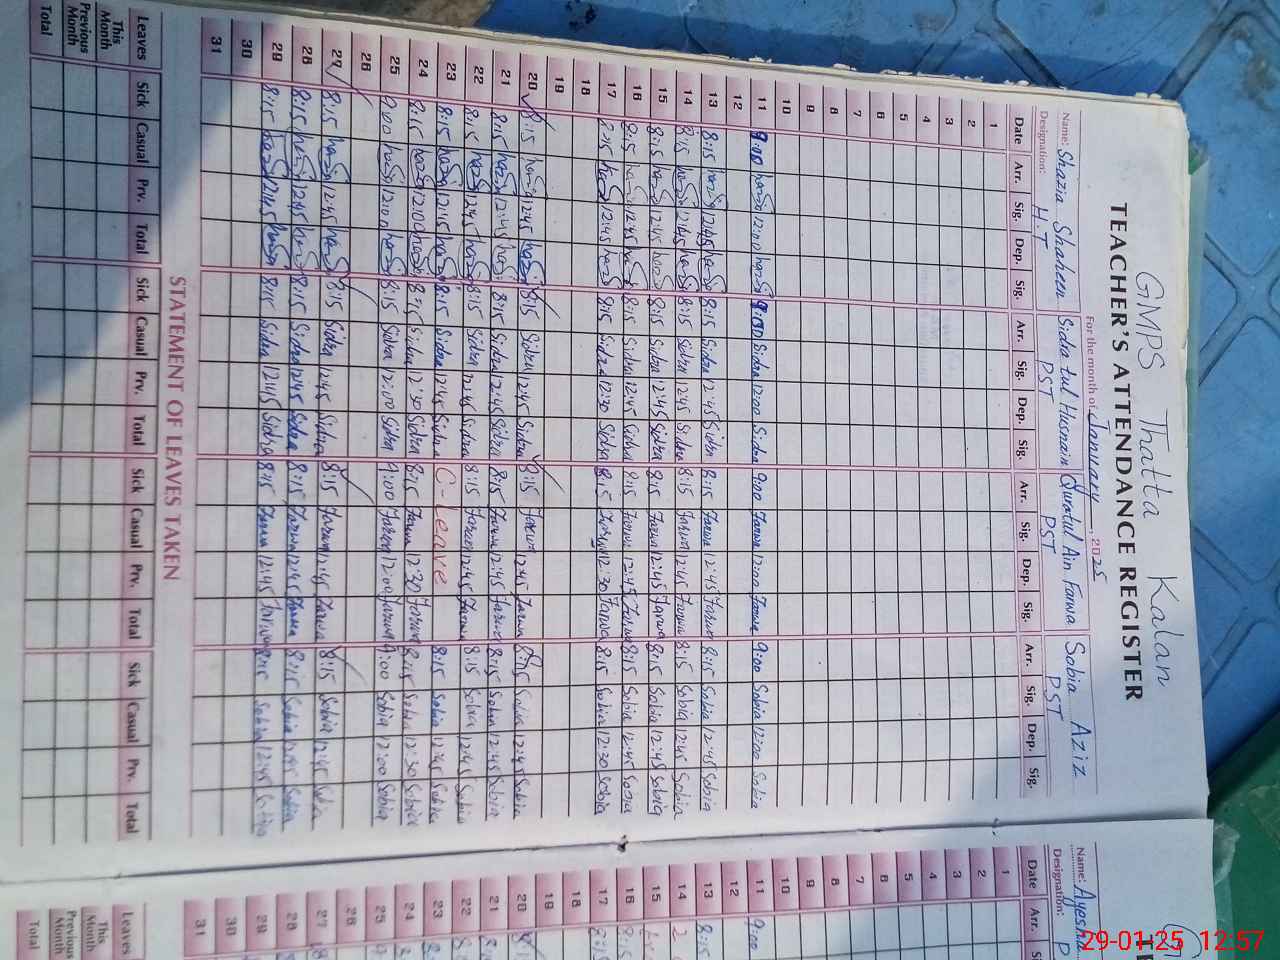 GMPS Thatta Kalan
TEACHER'S ATTENDANCE REGISTER
For the month of January, 2025
Name: Shazia Shaheen Sidra tul Husnain Quratul Ain Farwa Sobia Aziz
Designation: H.T PST PST PST
Date Arr. Sig. Dep. Sig. Arr. Sig. Dep. Sig. Arr. Sig. Dep. Sig. Arr. Sig. Dep. Sig.
1
2
3
4
5
6
7
8
9
10
11 9:00 12:00 9:00 Sidra 12:00 Sidra 9:00 Farwa 12:00 Farwa 9:00 Sobia 12:00 Sobia
12
13 8:15 12:45 8:15 Sidra 12:45 Sidra 8:15 Farwa 12:45 Farwa 8:15 Sobia 12:45 Sobia
14 8:15 12:45 8:15 Sidra 12:45 Sidra 8:15 Farwa 12:45 Farwa 8:15 Sobia 12:45 Sobia
15 8:15 12:45 8:15 Sidra 12:45 Sidra 8:15 Farwa 12:45 Farwa 8:15 Sobia 12:45 Sobia
16 8:15 12:45 8:15 Sidra 12:45 Sidra 8:15 Farwa 12:45 Farwa 8:15 Sobia 12:45 Sobia
17 8:15 12:45 8:15 Sidra 12:30 Sidra 8:15 Farwa 12:30 Farwa 8:15 Sobia 12:30 Sobia
18
19
20 8:15 12:45 8:15 Sidra 12:45 Sidra 8:15 Farwa 12:45 Farwa 8:15 Sobia 12:45 Sobia
21 8:15 12:45 8:15 Sidra 12:45 Sidra 8:15 Farwa 12:45 Farwa 8:15 Sobia 12:45 Sobia
22 8:15 12:45 8:15 Sidra 12:45 Sidra 8:15 Farwa 12:45 Farwa 8:15 Sobia 12:45 Sobia
23 8:15 12:15 8:15 Sidra 12:45 Sidra C-leave 8:15 Sobia 12:45 Sobia
24 8:15 12:00 8:15 Sidra 12:30 Sidra 8:15 Farwa 12:30 Farwa 8:15 Sobia 12:30 Sobia
25 9:00 12:00 8:15 Sidra 12:00 Sidra 9:00 Farwa 12:00 Farwa 9:00 Sobia 12:00 Sobia
26
27 8:15 12:45 8:15 Sidra 12:45 Sidra 8:15 Farwa 12:45 Farwa 8:15 Sobia 12:45 Sobia
28 8:15 12:45 8:15 Sidra 12:45 Sidra 8:15 Farwa 12:45 Farwa 8:15 Sobia 12:45 Sobia
29 8:15 12:45 8:15 Sidra 12:45 Sidra 8:15 Farwa 12:45 Farwa 8:15 Sobia 12:45 Sobia
30
31
STATEMENT OF LEAVES TAKEN
Leaves Sick Casual Prv. Total Sick Casual Prv. Total Sick Casual Prv. Total Sick Casual Prv. Total
This Month
Previous Month
Total
TE
Name: Ayesha
Designation: P
Date Arr.
1
2
3
4
5
6
7
8
9
10
11 9:00
12
13 8:15
14
15
16 8:15
17 8:15
18
19
20
21
22
23
24
25
26
27
28
29
30
31
Leaves
This Month
Previous Month
Total
29-01-25 12:57